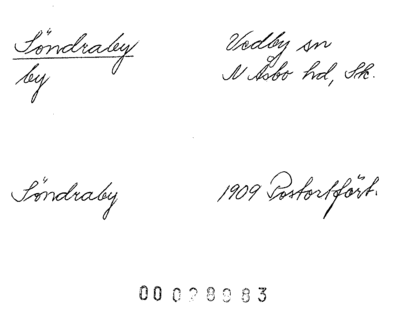 Söndraby Vedby sn
by N Åsbo hd, Sk.
Söndraby 1909 Postortsfört.
00028983